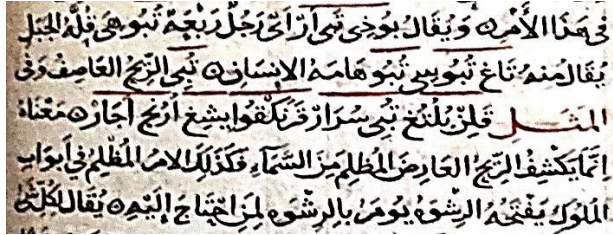 في هَذَا الأَمْرِ ه وَيُقَالُ بُوذِي تُبِي أَرْ اَيْ رَجُلٌ رَبْعَةٌ تُبُو هِيَ قُلَّةُ الجَبَلِ
يُقَالُ مِنْهُ تَاغْ تُبُوسِي تُبُو هَامَةُ الإِنْسَانِ ه تُبِي الرِّيحُ العَاصِفُ وَفي
المَثَلِ قَلِنْ بُلُتُغْ تُبِي سُرَارْ قَرَنْكقُو ايشِغْ أُرُنج أَجَارْ ه مَعْنَاهُ
اِنَّمَا يَكْشِفُ الرِّيحُ العَارِضَ المُظْلِمَ مِنَ السَّمَاءِ فَكَذَلِكَ الامْرُ المُظْلِمُ في أَبْوَابِ
المُلُوكِ يَفْتَحُهُ الرِّشْوَةُ يُومَرُ بِالرِّشْوَةِ لِمَنِ احْتَاجَ اِلَيْهِ ه يُقَالُ لِكُلِّ شَيْ